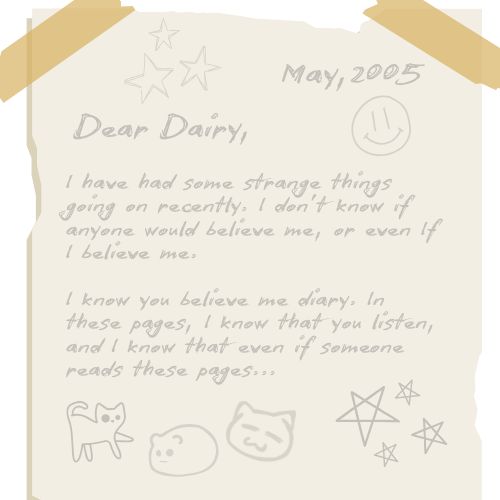 May, 2005
Dear Dairy,
I have had some strange things
going on recently. I don't know if
anyone would believe me, or even If
I believe me.
I know you believe me diary. In
these pages, I know that you listen,
and I know that even if someone
reads these pages...